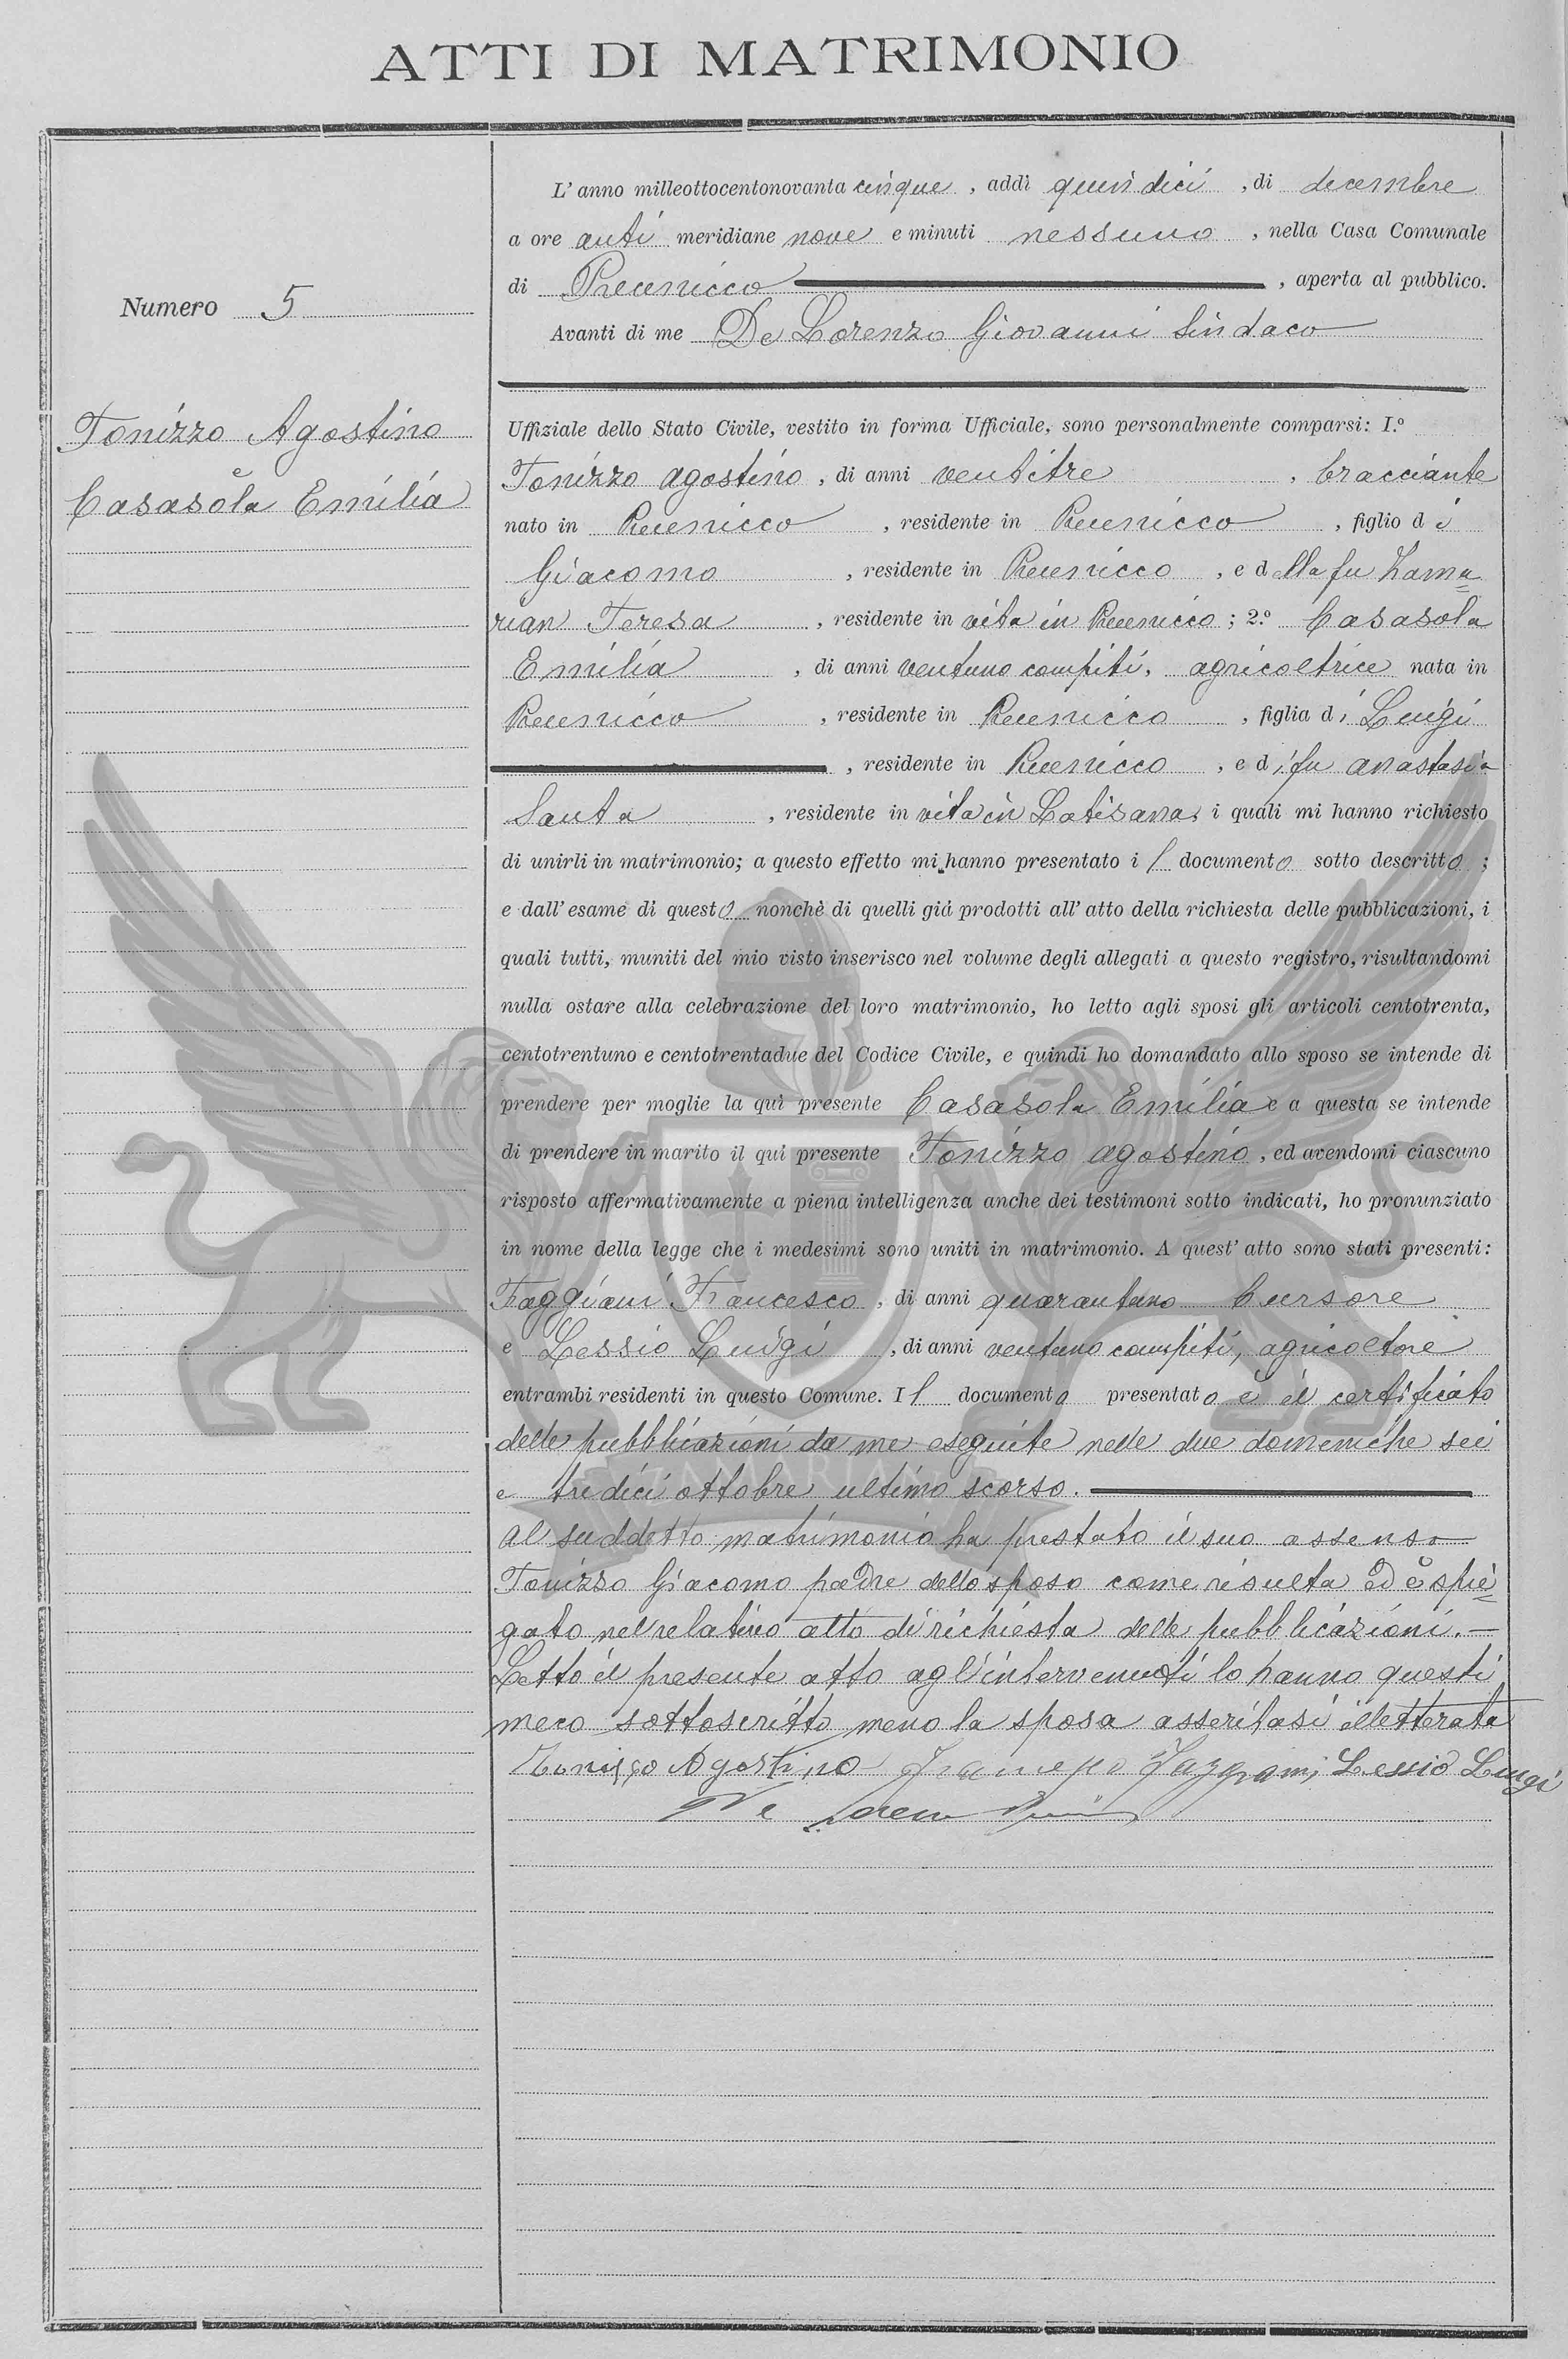 ATTI DI MATRIMONIO
Numero 5
Tonizzo Agostino
e
Casasola Emilia
L' anno milleottocentonovanta cinque , addì quindici , di decembre
a ore anti meridiane nove e minuti nessuno , nella Casa Comunale
di Precenicco , aperta al pubblico.
Avanti di me De Lorenzo Giovanni Sindaco
Uffiziale dello Stato Civile, vestito in forma Ufficiale, sono personalmente comparsi: I.º
Tonizzo Agostino , di anni ventitre , bracciante
nato in Precenicco , residente in Precenicco , figlio di
Giacomo , residente in Precenicco , e della fu Zama=
rian Teresa , residente in vita in Precenicco ; 2.º Casasola
Emilia , di anni ventuno compiti, agricoltrice nata in
Precenicco , residente in Precenicco , figlia di Luigi
, residente in Precenicco , e di fu Anastasia
Santa , residente in vita in Latisana, i quali mi hanno richiesto
di unirli in matrimonio; a questo effetto mi hanno presentato il documento sotto descritto ;
e dall' esame di questo nonchè di quelli già prodotti all' atto della richiesta delle pubblicazioni, i
quali tutti, muniti del mio visto inserisco nel volume degli allegati a questo registro, risultandomi
nulla ostare alla celebrazione del loro matrimonio, ho letto agli sposi gli articoli centotrenta,
centotrentuno e centotrentadue del Codice Civile, e quindi ho domandato allo sposo se intende di
prendere per moglie la quì presente Casasola Emilia e a questa se intende
di prendere in marito il quì presente Tonizzo Agostino , ed avendomi ciascuno
risposto affermativamente a piena intelligenza anche dei testimoni sotto indicati, ho pronunziato
in nome della legge che i medesimi sono uniti in matrimonio. A quest' atto sono stati presenti:
Faggiani Francesco , di anni quarantuno Cursore
e Lessio Luigi , di anni ventuno compiti, agricoltore
entrambi residenti in questo Comune. Il documento presentato è il certificato
delle pubblicazioni da me eseguite nelle due domeniche sei
e tredici ottobre ultimo scorso.
Al suddetto matrimonio ha prestato il suo assenso
Tonizzo Giacomo padre dello sposo come risulta ed è spie=
gato nel relativo atto di richiesta delle pubblicazioni.
Letto il presente atto agl'intervenuti lo hanno questi
meco sottoscritto meno la sposa asseritasi illetterata
Tonizzo Agostino Francesco Faggiani Lessio Luigi
De Lorenzo